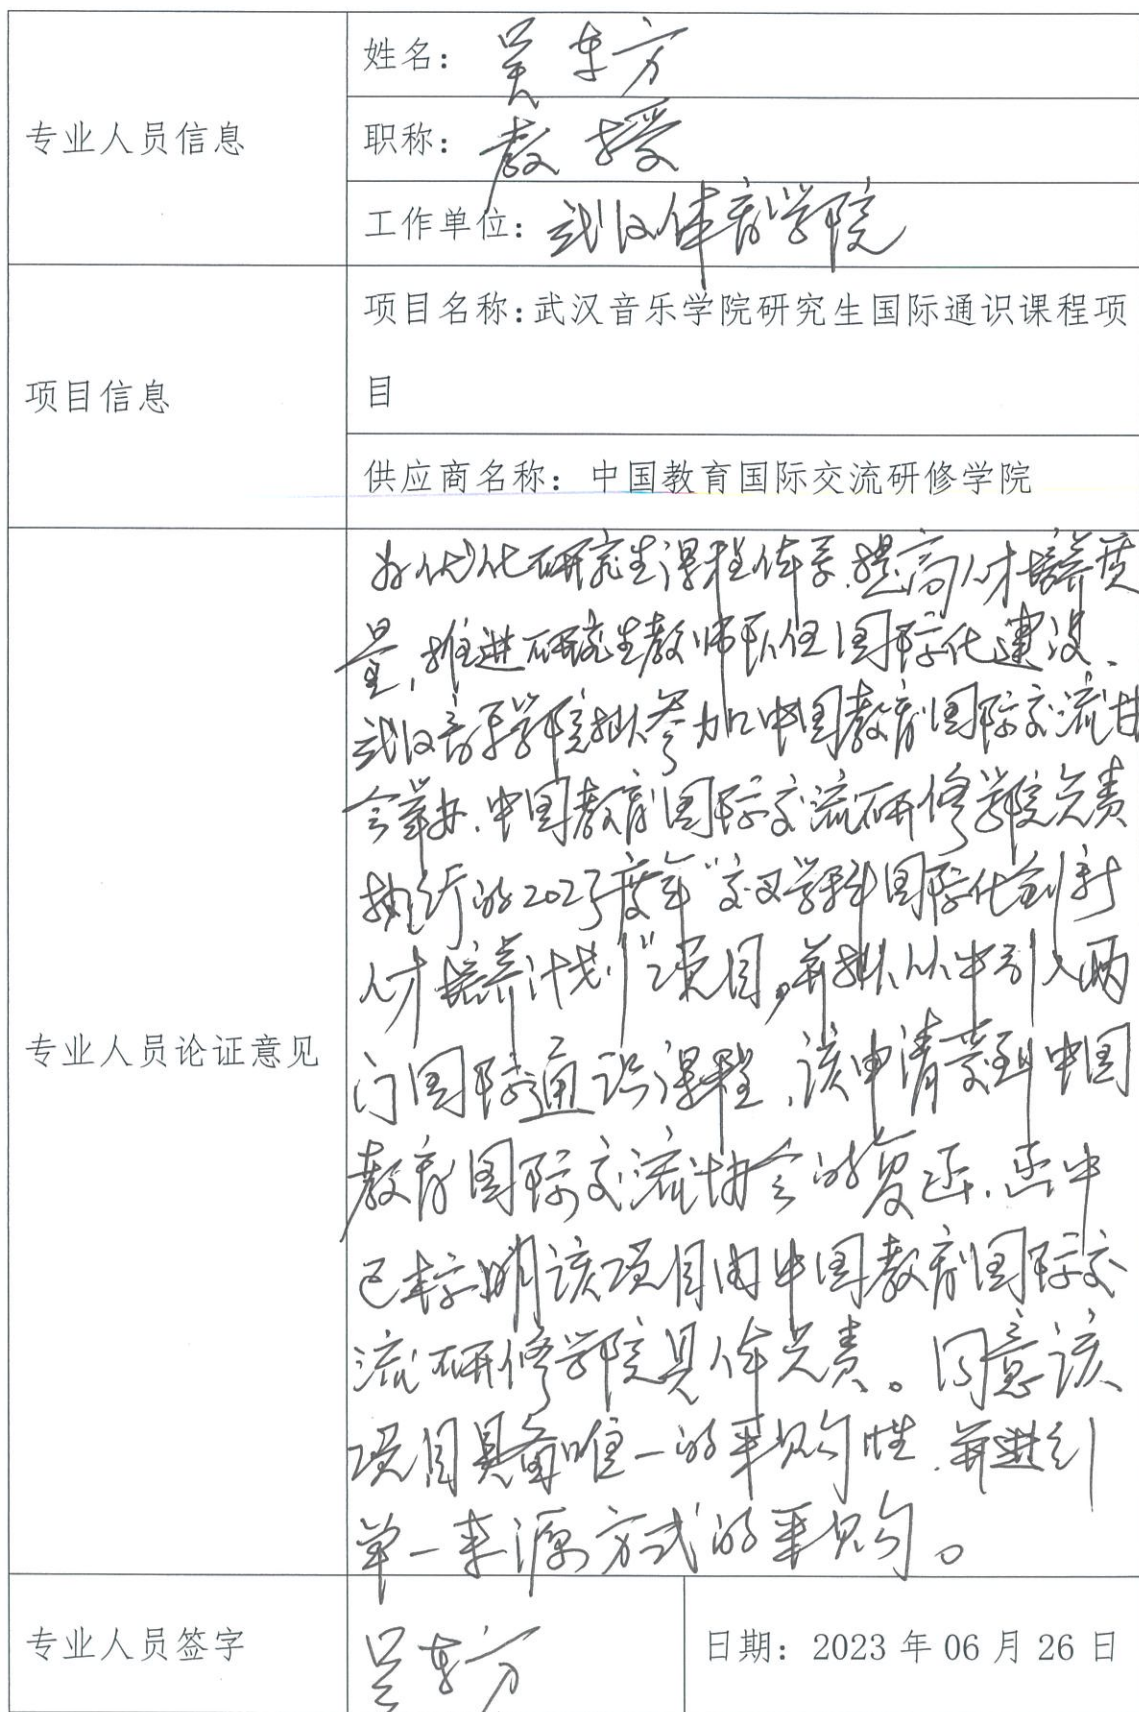 专业人员信息
姓名: 吴东方
职称: 教授
工作单位: 武汉体育学院
项目信息
项目名称:武汉音乐学院研究生国际通识课程项
目
供应商名称: 中国教育国际交流研修学院
专业人员论证意见
为优化研究生课程体系,提高人才培养质
量,推进研究生教师队伍国际化建设、
武汉音乐学院拟参加中国教育国际交流协
会举办、中国教育国际交流研修学院负责
执行的2023度年“交叉学科国际化创新
人才培养计划”项目,并拟从中引入两
门国际通识课程,该申请获到中国
教育国际交流协会的复函,函中
已标明该项目由中国教育国际交
流研修学院具体负责。同意该
项目具备唯一的采购性,并进行
单一来源方式的采购。
专业人员签字
吴东方
日期: 2023 年 06 月 26 日